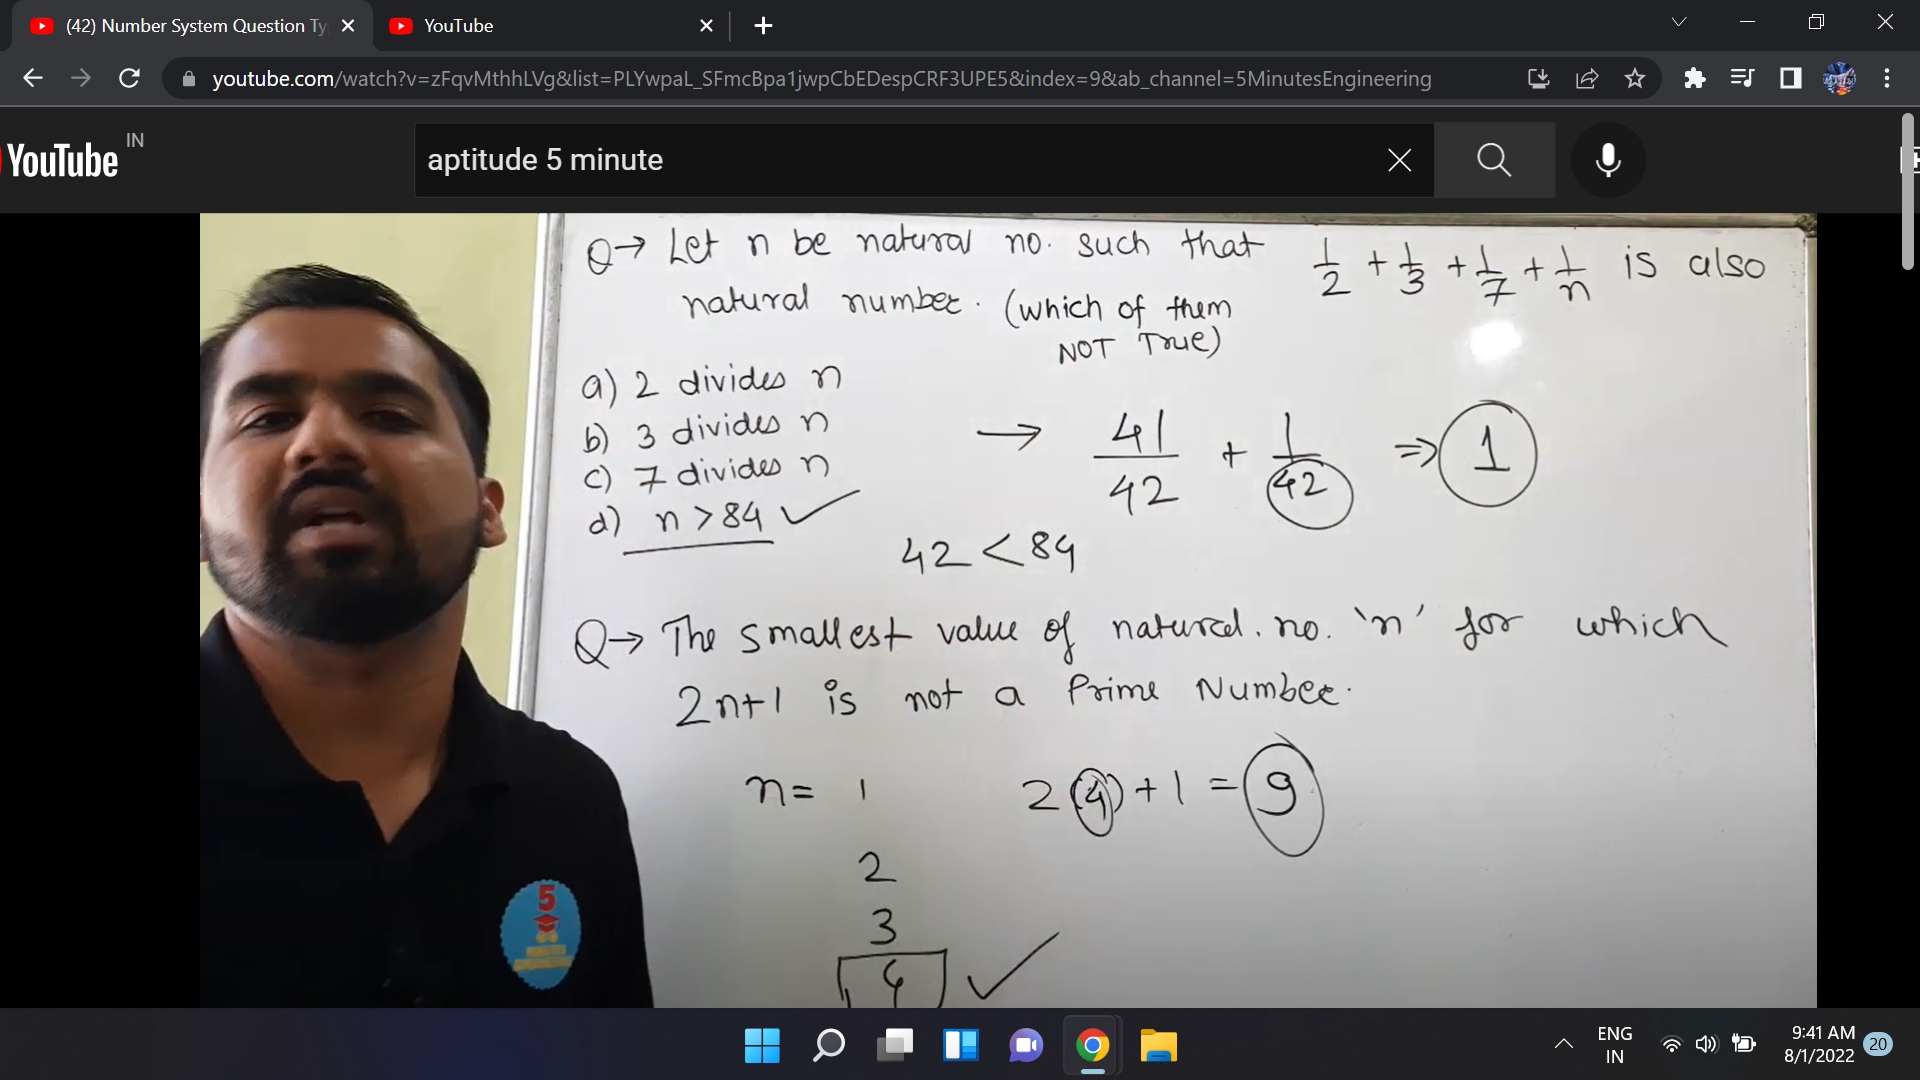 (42) Number System Question Ty
YouTube
youtube.com/watch?v=zFqvMthhLVg&list=PLYwpaL_SFmcBpa1jwpCbEDespCRF3UPE5&index=9&ab_channel=5MinutesEngineering
YouTube IN
aptitude 5 minute
Q→ Let n be natural no. such that 1/2 + 1/3 + 1/7 + 1/n is also
natural number. (which of them
NOT True)
a) 2 divides n
b) 3 divides n
c) 7 divides n
d) n > 84 ✓
→ 41/42 + 1/42 ⇒ 1
42 < 84
Q→ The smallest value of natural. no. 'n' for which
2n+1 is not a Prime Number.
n = 1 2(4) + 1 = 9
2
3
4 ✓
5
ENG
IN
9:41 AM
8/1/2022
20